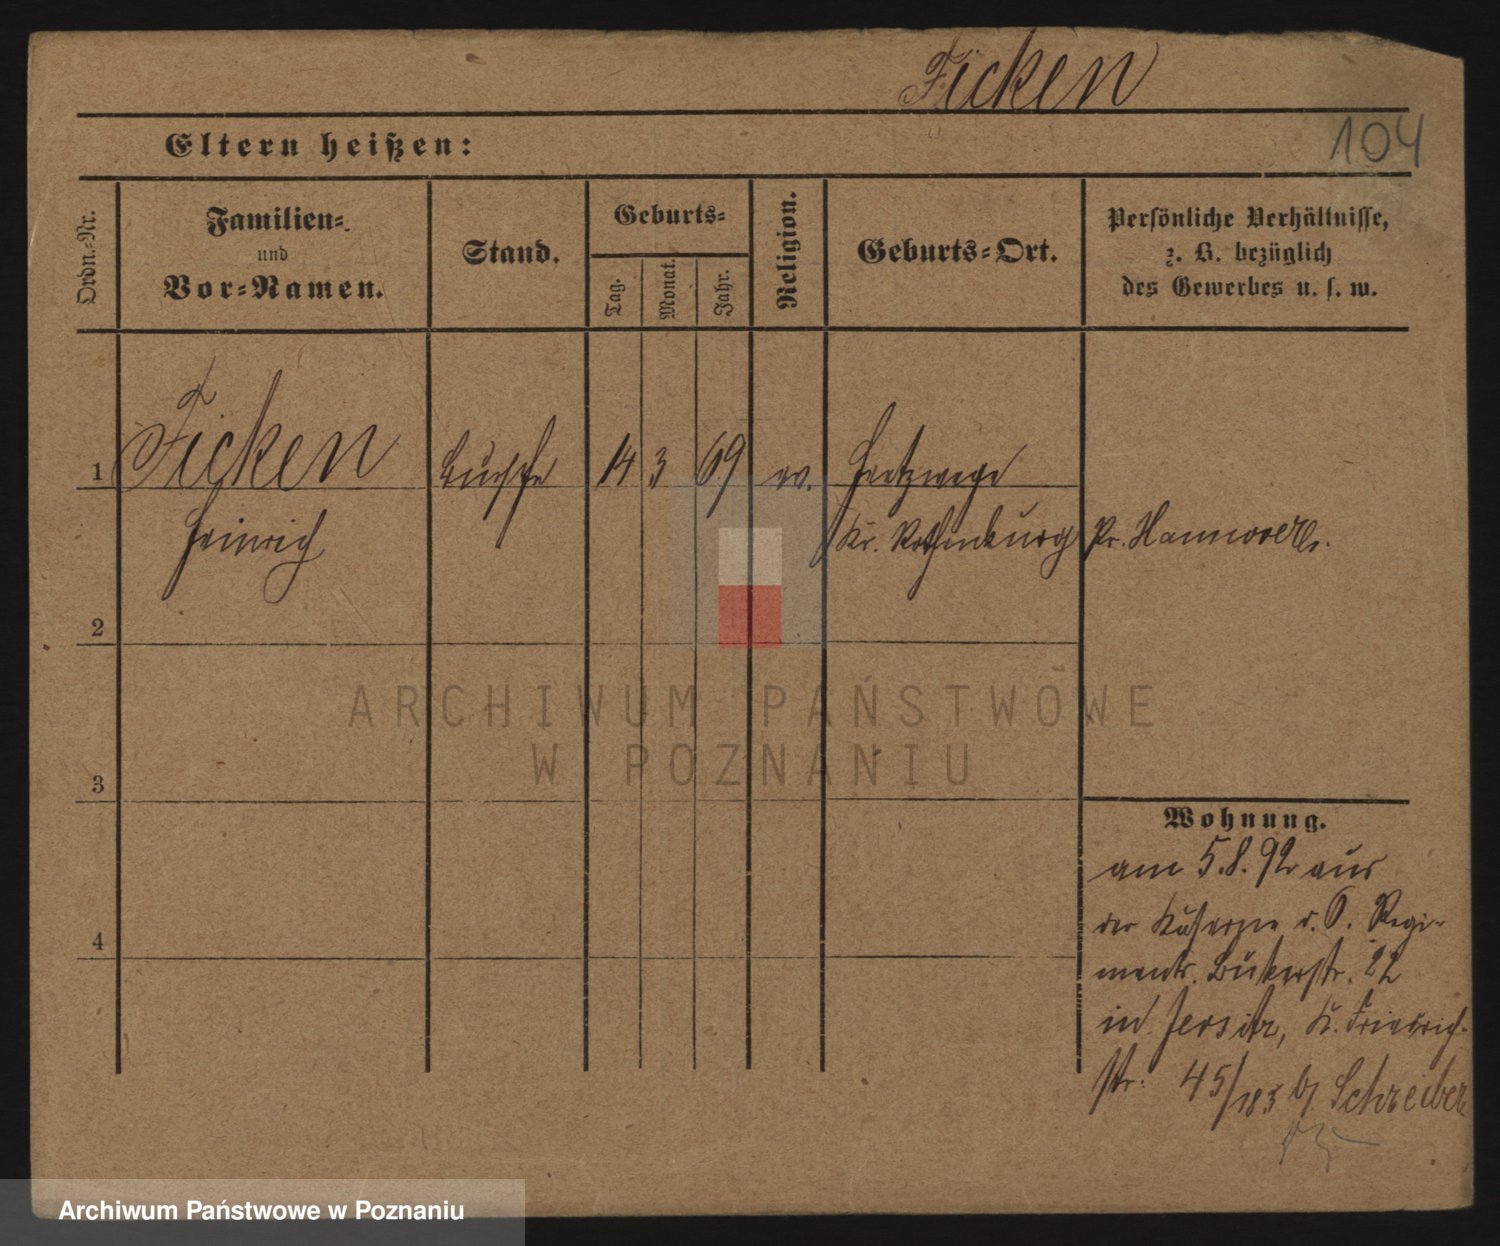 Ficken
104
Eltern heißen:
Ordn.=Nr.
Familien=
und
Vor=Namen.
Stand.
Geburts=
Tag.
Monat.
Jahr.
Religion.
Geburts=Ort.
Persönliche Verhältnisse,
z. B. bezüglich
des Gewerbes u. s. w.
1
Ficken
Heinrich
Bursche
14
3
69
ev.
Hertzwege
Kr. Rothenburg Pr. Hannover
2
3
4
Wohnung.
am 5.8.92 aus
der Kaserne d. 6. Regi-
ments. Bukerstr. 22
in Jersitz, K. Friedrich-
str. 45/183 b/ Schreiber
ARCHIWUM PAŃSTWOWE
W POZNANIU
Archiwum Państwowe w Poznaniu